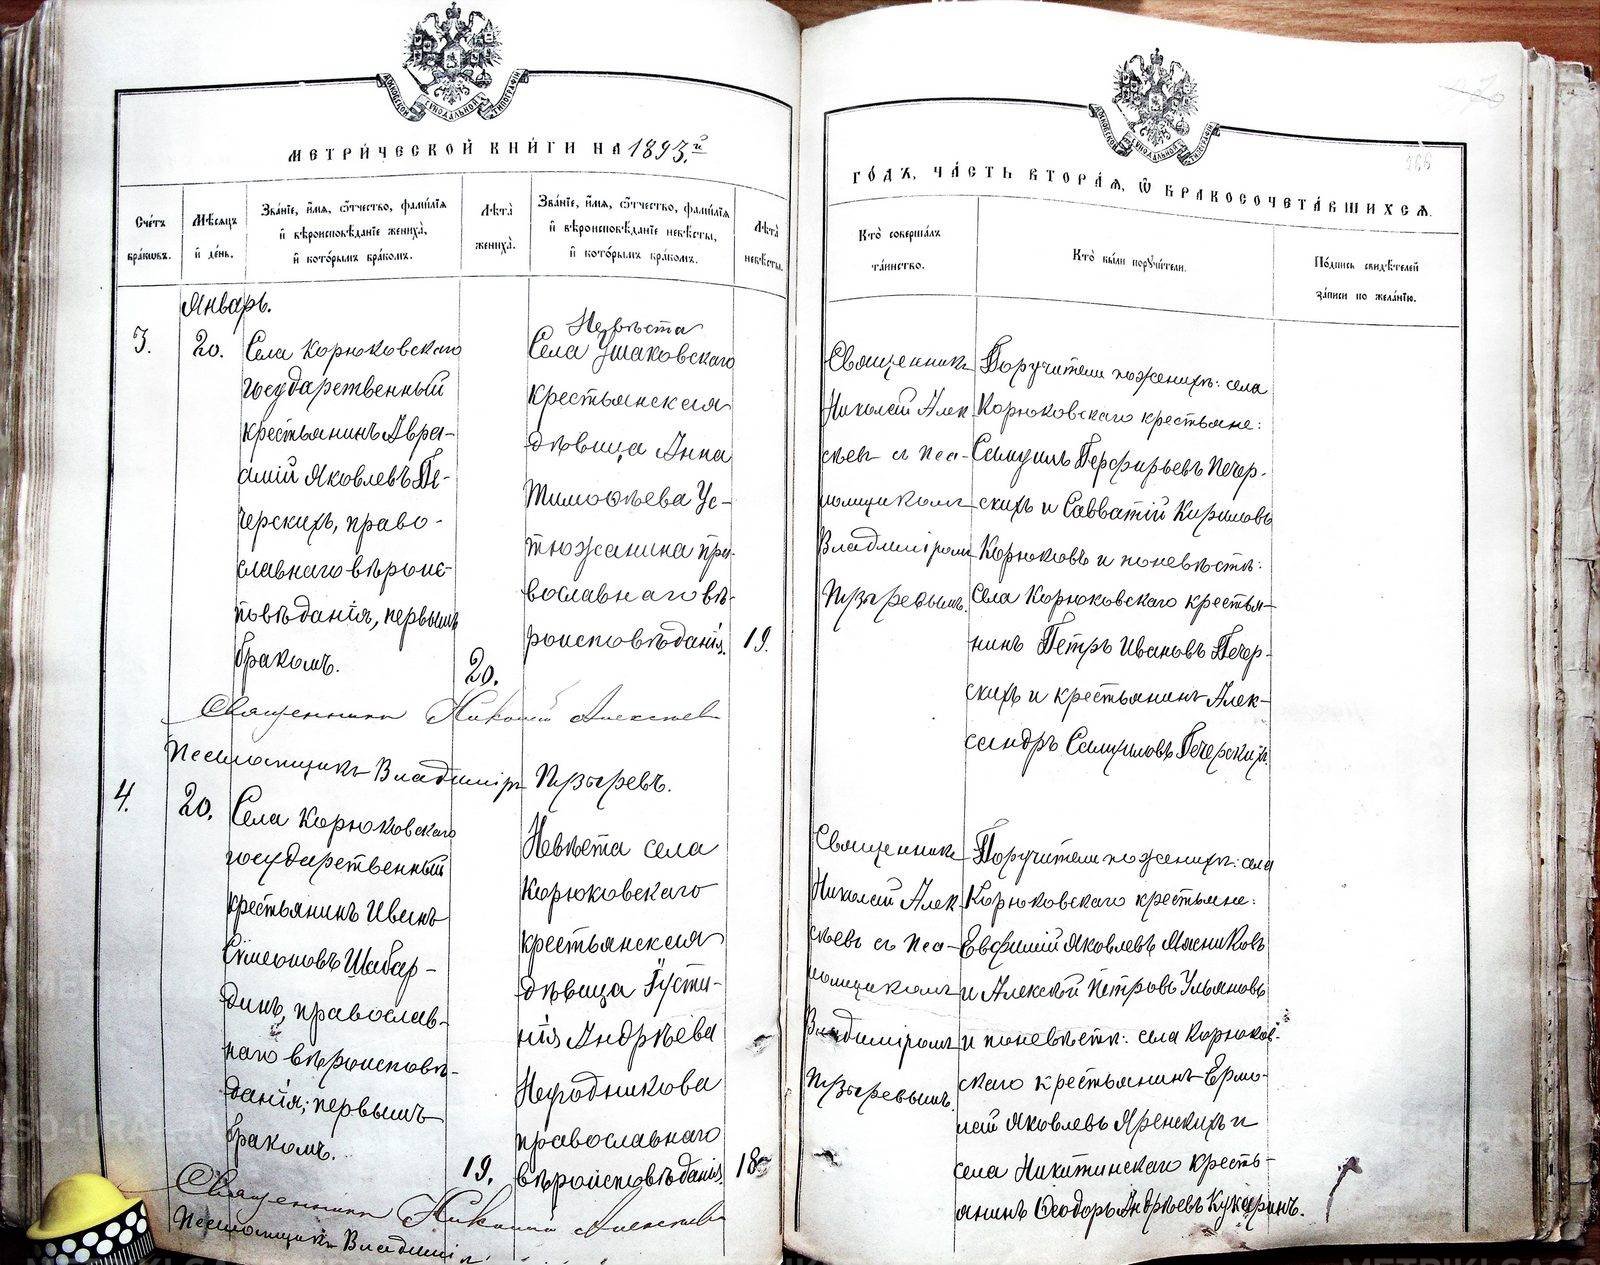 МЕТРИ́ЧЕСКОЙ КНИ́ГИ НА 1893.й
Сче́тъ бра́ковъ.
Мѣ́сяцъ и де́нь.
Зва́нїе, и́мя, ѻ҆́тчество, фами́лїя и҆ вѣроисповѣ́данїе жениха̀, и҆ кото́рымъ бра́комъ.
Лѣ́та жениха̀.
Зва́нїе, и́мя, ѻ҆́тчество, фами́лїя и҆ вѣроисповѣ́данїе невѣ́сты, и҆ кото́рымъ бра́комъ.
Лѣ́та невѣ́сты.
Январь.
3.
20.
Села Корюковскаго
государственный
крестьянинъ Авра-
амій Яковлевъ Пе-
черскихъ, право-
славнаго вѣроис-
повѣданія, первымъ
бракомъ.
20.
Невѣста
Села Ушаковскаго
крестьянская
дѣвица Анна
Тимоѳѣева Ус-
тюжанина пра-
вославнаго вѣ-
роисповѣданія.
19.
Священникъ Николай Алексѣевъ
Псаломщикъ Владиміръ Пузыревъ.
4.
20.
Села Корюковскаго
государственный
крестьянинъ Иванъ
Сѵмеоновъ Шабар-
динъ, православ-
наго вѣроисповѣ-
данія; первымъ
бракомъ.
19.
Невѣста села
Корюковскаго
крестьянская
дѣвица Іусти-
нія Андрѣева
Негодникова
православнаго
вѣроисповѣданія,
18
Священникъ Николай Алексѣевъ
Псаломщикъ Владимі
ГО́ДЪ, ЧА́СТЬ ВТОРА́Я, Ѡ҆ БРАКОСОЧЕТА́ВШИХСЯ.
Кто̀ соверша́лъ та́инство.
Кто̀ бы́ли порꙋчи́тели.
По́дпись свидѣ́телей за́писи по жела́нїю.
Священникъ
Николай Алек-
сѣевъ съ Пса-
ломщикомъ
Владиміромъ
Пузыревымъ.
Поручители по женихѣ: села
Корюковскаго крестьяне:
Самуилъ Перфирьевъ Печер-
скихъ и Савватій Кириловъ
Корюковъ и по невѣстѣ:
села Корюковскаго крестья-
нинъ Петръ Ивановъ Печер-
скихъ и крестьянинъ Алек-
сандръ Самуиловъ Печерскихъ.
Священникъ
Николай Алек-
сѣевъ съ Пса-
ломщикомъ
Владиміромъ
Пузыревымъ.
Поручители по женихѣ: села
Корюковскаго крестьяне:
Евфимій Яковлевъ Мясниковъ
и Алексѣй Петровъ Ульяновъ
и по невѣстѣ: села Корюков-
скаго крестьянинъ Ермо-
лай Яковлевъ Яренскихъ и
села Никитинскаго кресть-
янинъ Ѳеодоръ Андрѣевъ Кукаринъ.